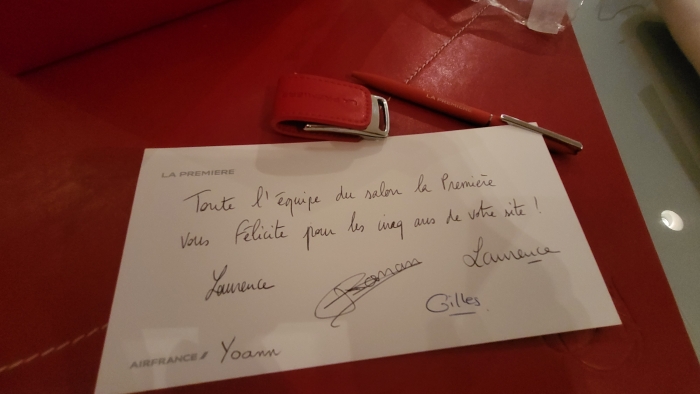 LA PREMIERE
Toute l'équipe du salon la Première
vous félicite pour les cinq ans de votre site !
Laurence
Laurence
Gilles
AIRFRANCE Yoann